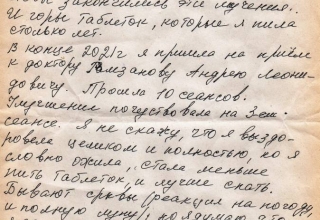 закончились эти мучения..
И горы таблеток, которые я пила
столько лет.
В конце 2021г я пришла на приём
к доктору Рамзанову Андрею Леони-
довичу. Прошла 10 сеансов.
Улучшение почувствовала на 3ем
сеансе. Я не скажу, что я выздо-
ровела целиком и полностью, но я
словно ожила, стала меньше
пить таблеток, и лучше спать.
Бывают срывы (реакция на погоду
и полную луну),